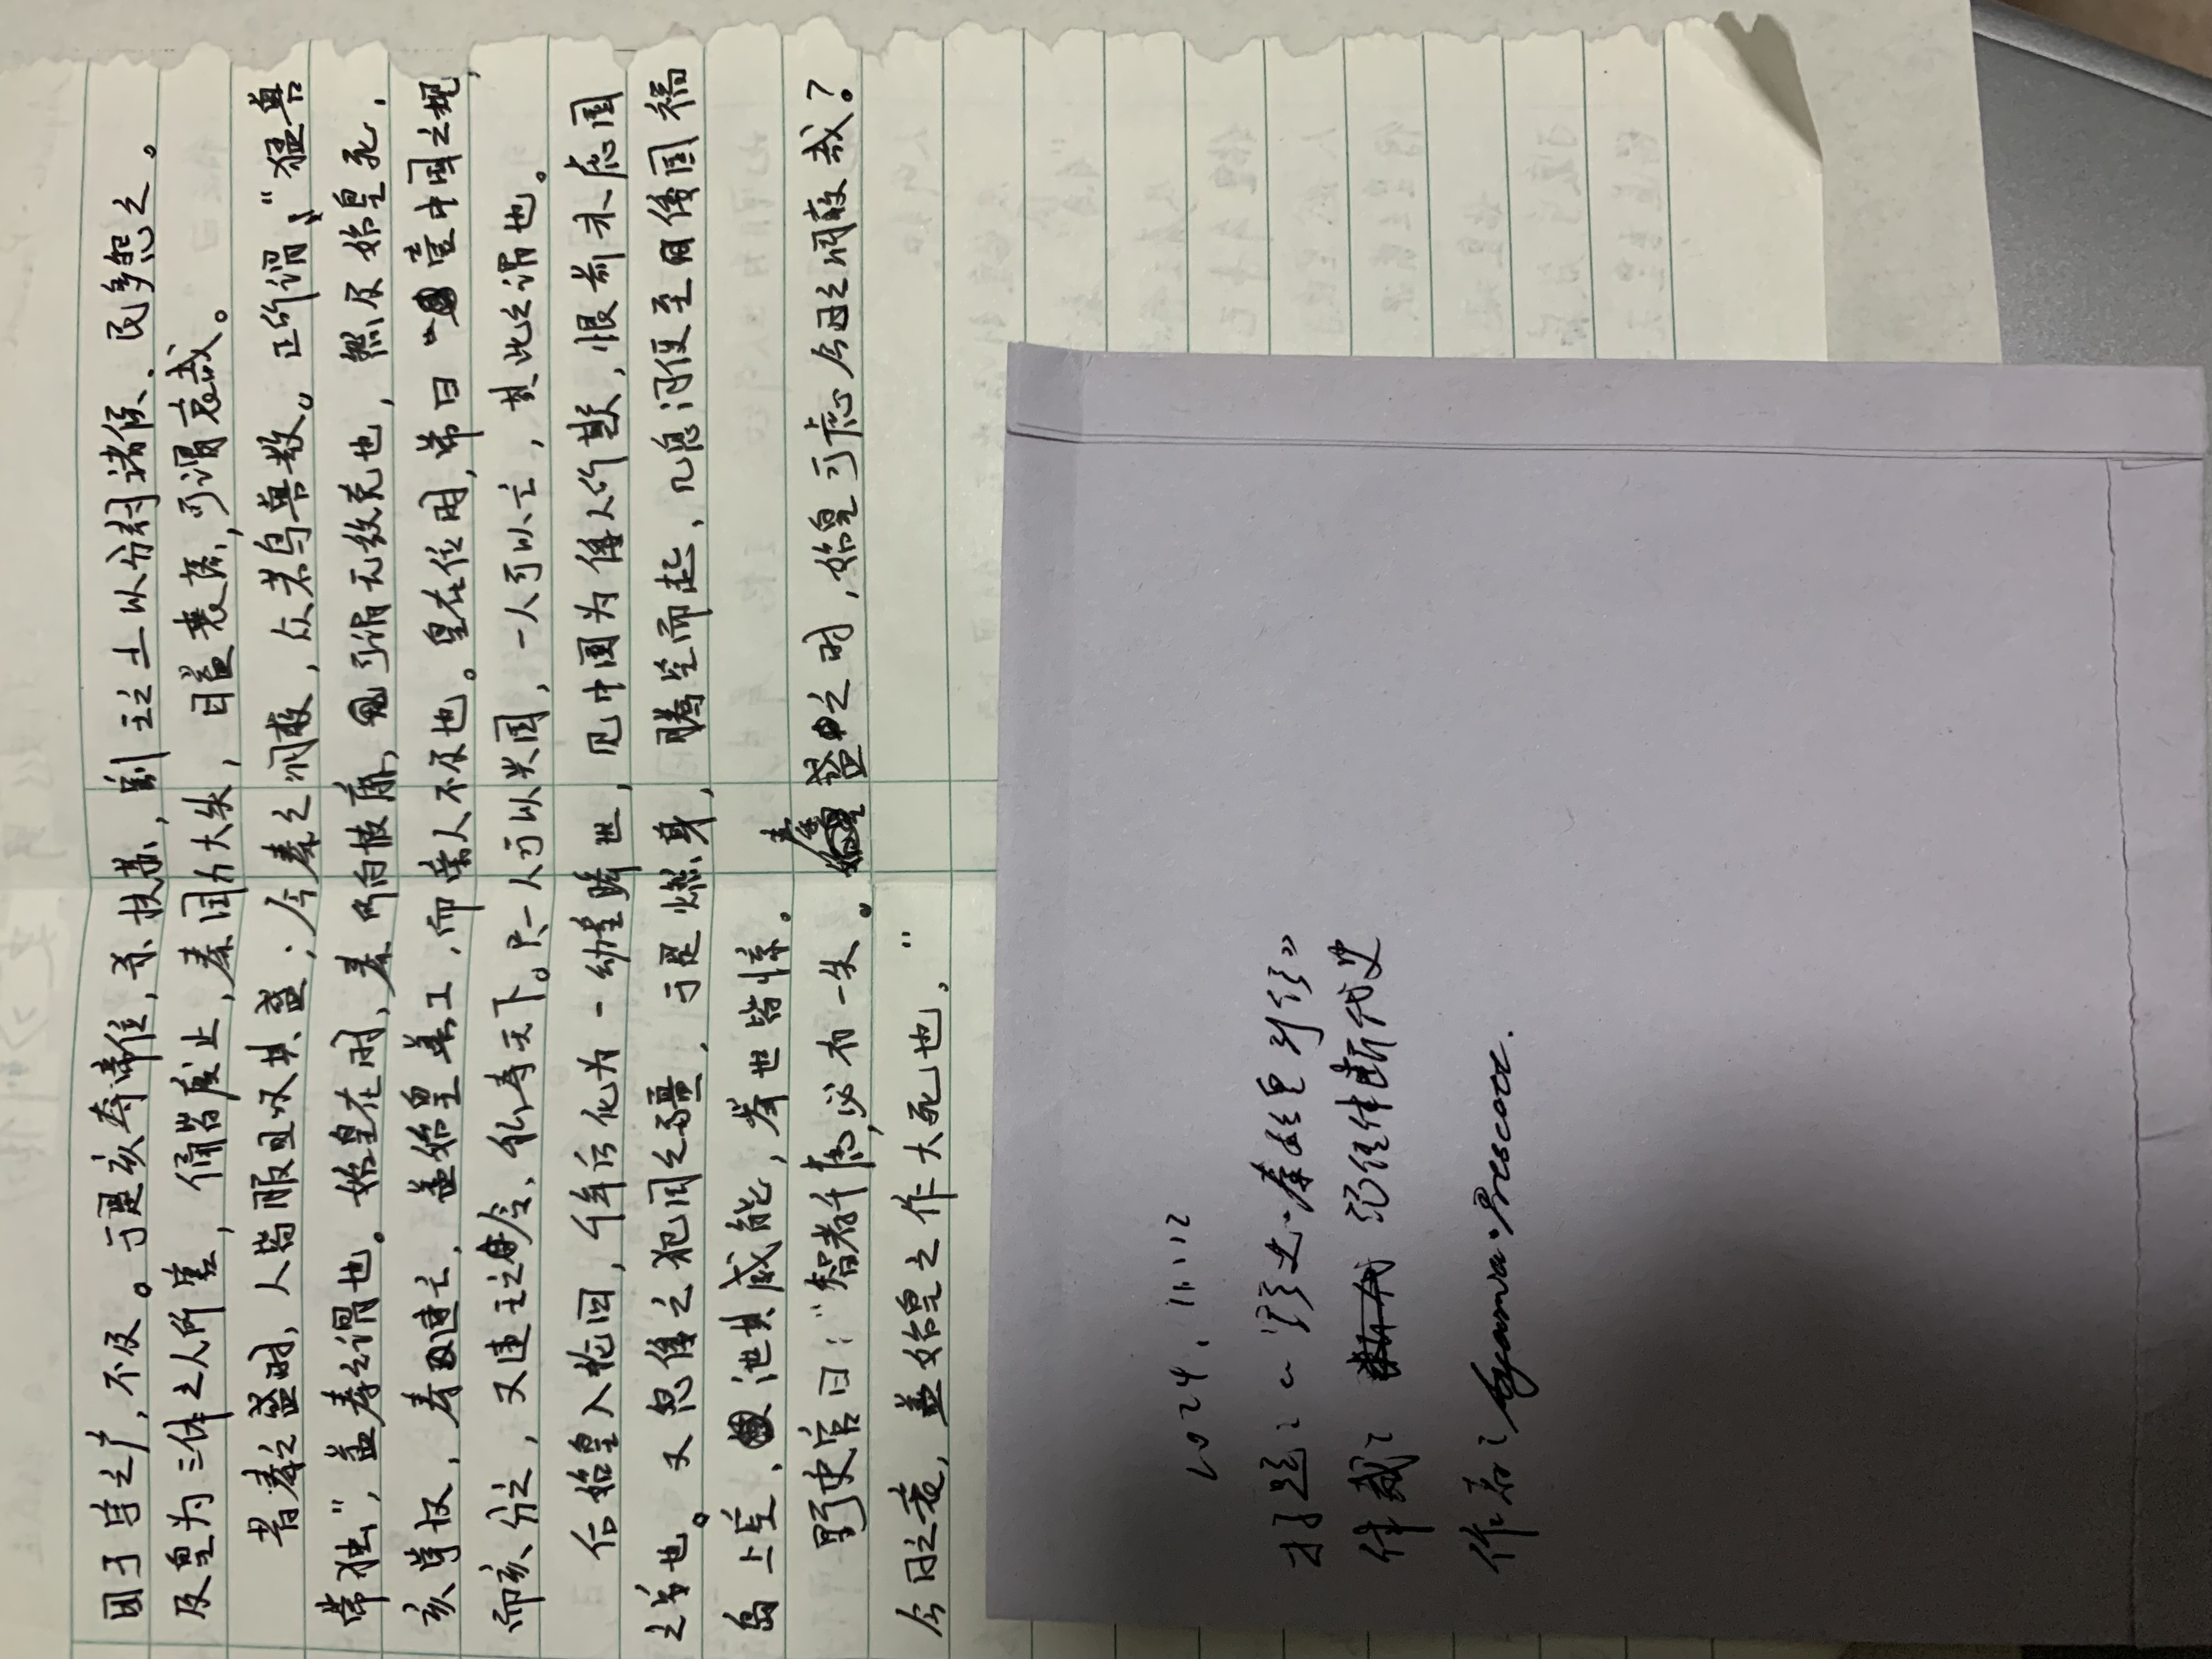 囿于宇之广，不及。于是亥夺帝位，杀扶苏，割王之土以分封诸侯、民多怨之。
及皇为三体之人所害，俑皆废止，秦国力大失，日益衰落，可谓哀哉。
昔秦之盛时，人皆服且叹其盛；今秦之凋敝，众若鸟兽散。正所谓，“猛兽
常独”，盖秦之谓也。始皇在时，秦所向披靡，可谓无敌克也，然及始皇死，
亥掌权，秦速亡，盖始皇善工，而常人不及也。皇在位时，常曰“壹中国之规，
而亥分之，又违王之令、私夺天下。只一人可以兴国，一人可以亡，其此之谓也。
后始皇入轮回，千年后化为一幼童降世，见中国为倭人所欺，恨前未虑国
之宇也。又怨倭之犯国之疆，于是燃身，腾空而起，几息间便至倭国福
岛上空，池其威能，举世皆惊。
野史官曰：“智者千虑，必有一失。秦盛之时，始皇可虑今日之凋敝哉？
今日之衰，盖始皇之作大死也，”
2024.11.12
标题：《野史·秦始皇列传》
体裁：纪传体断代史
作者：Prescott.